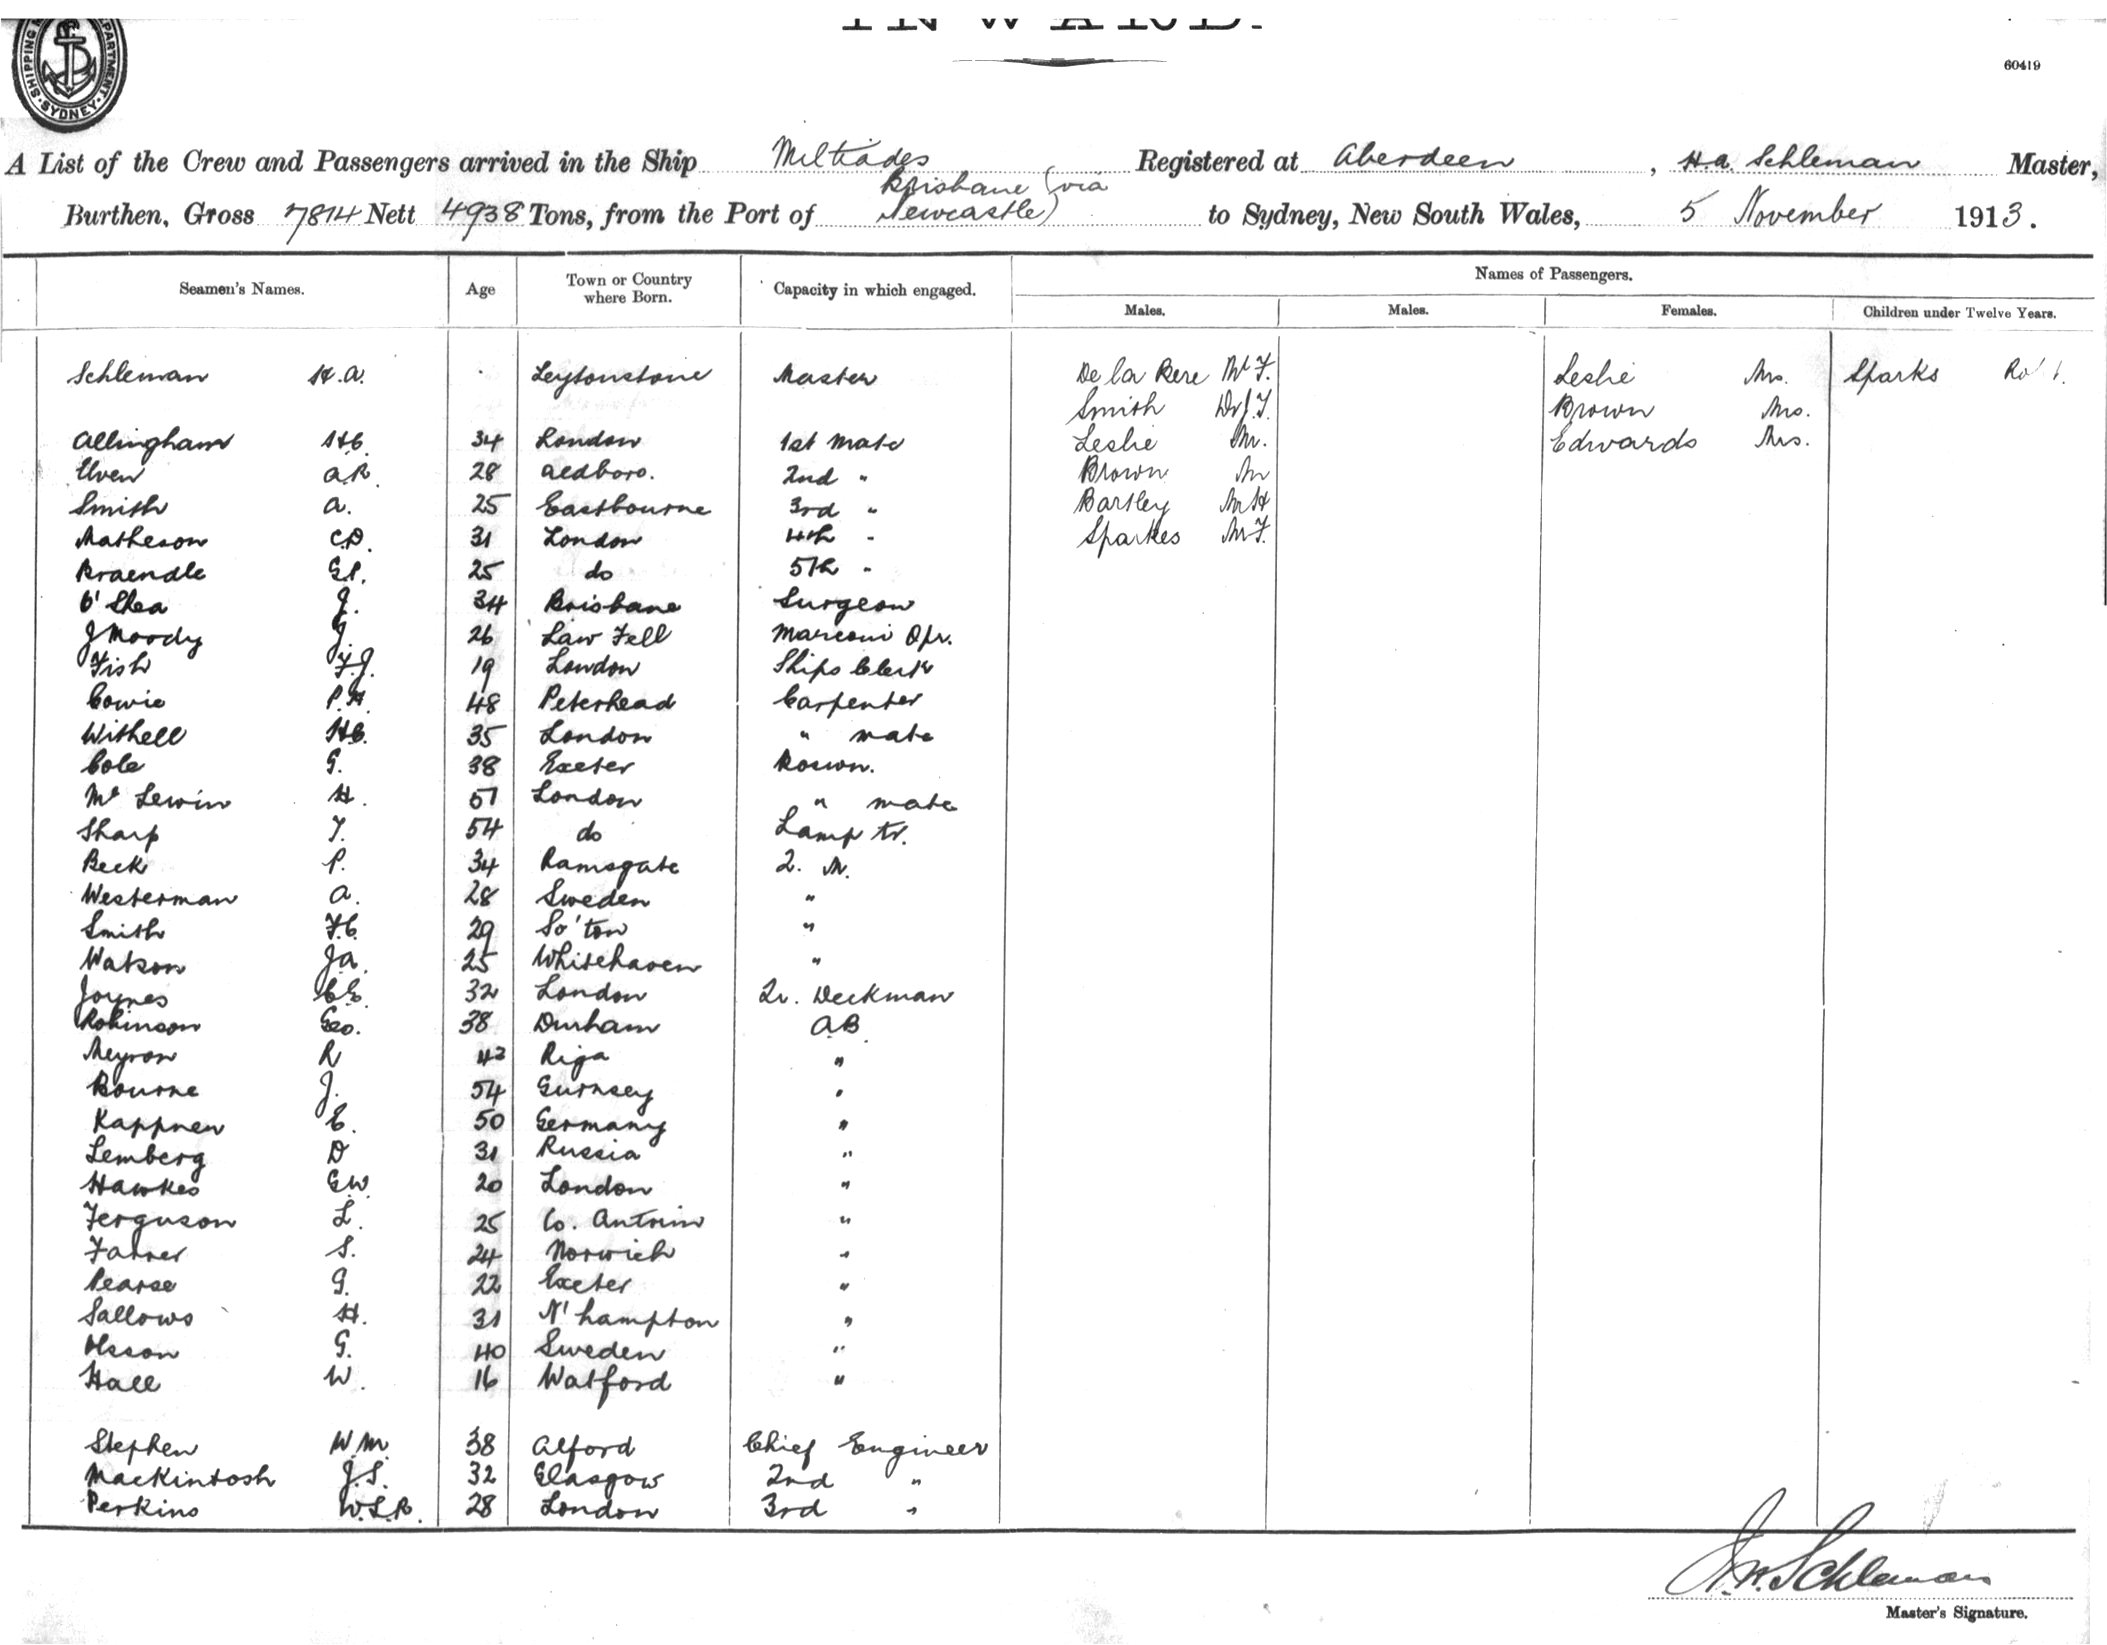 INWARD.
SHIPPING
PARTMENT.
SYDNEY
60419
A List of the Crew and Passengers arrived in the Ship Miltiades Registered at Aberdeen, H.A. Schleman Master,
Burthen, Gross 7814 Nett 4938 Tons, from the Port of Brisbane (via Newcastle) to Sydney, New South Wales, 5 November 1913.
Seamen's Names. Age Town or Country where Born. Capacity in which engaged. Names of Passengers.
Males. Males. Females. Children under Twelve Years.
Schleman H.A. Leytonstone Master De la Pere Mr F. Leslie Mrs. Sparks Robt.
Smith Dr J.T. Brown Mrs.
Allingham H.C. 34 London 1st Mate Leslie Mr. Edwards Mrs.
Uven A.R. 28 Aldboro. 2nd " Brown Mr
Smith A. 25 Eastbourne 3rd " Bartley Mr H
Matheson C.D. 31 London 4th " Sparkes Mr F.
Braendle G.P. 25 do 5th "
O'Shea J. 34 Brisbane Surgeon
J Moody J. 26 Law Fell Marconi Opr.
Fish F.J. 19 London Ships Clerk
Cowie P.H. 48 Peterhead Carpenter
Withell H.C. 35 London " mate
Cole G. 38 Exeter Boswn.
Mc Lewin H. 51 London " mate
Sharp T. 54 do Lamp tr.
Beck P. 34 Ramsgate Q. M.
Westerman A. 28 Sweden "
Smith F.C. 29 So'ton "
Watson J.A. 25 Whitehaven "
Joynes C.E. 32 London Qr. Deckman
Robinson Geo. 38 Durham A.B.
Meyron R 42 Riga "
Bourne J. 54 Gurnsey "
Kappnen E. 50 Germany "
Lemberg D 31 Russia "
Hawkes G.W. 20 London "
Ferguson L. 25 Co. Antrim "
Farrer S. 24 Norwich "
Pearse G. 22 Exeter "
Sallows H. 31 N'hampton "
Olsson G. 40 Sweden "
Hall W. 16 Watford "
Stephen W.M. 38 Alford Chief Engineer
Mackintosh J.S. 32 Glasgow 2nd "
Perkins W.S.R. 28 London 3rd "
H. A. Schleman
Master's Signature.